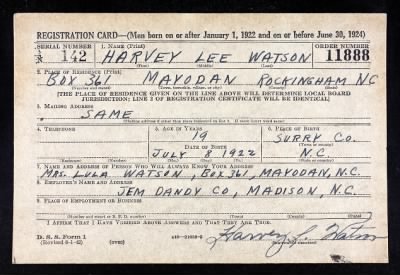 REGISTRATION CARD—(Men born on or after January 1, 1922 and on or before June 30, 1924)
SERIAL NUMBER 1. NAME (Print) ORDER NUMBER
142 HARVEY LEE WATSON 11888
2. PLACE OF RESIDENCE (Print)
BOX 361 MAYODAN ROCKINGHAM N.C.
(Number and street) (Town, township, village, or city) (County) (State)
[THE PLACE OF RESIDENCE GIVEN ON THE LINE ABOVE WILL DETERMINE LOCAL BOARD
JURISDICTION; LINE 2 OF REGISTRATION CERTIFICATE WILL BE IDENTICAL]
3. MAILING ADDRESS
SAME
4. TELEPHONE 5. AGE IN YEARS 6. PLACE OF BIRTH
19 SURRY CO.
DATE OF BIRTH
JULY 8, 1922 N.C.
(Mo.) (Day) (Yr.)
7. NAME AND ADDRESS OF PERSON WHO WILL ALWAYS KNOW YOUR ADDRESS
MRS. LULA WATSON, BOX 361, MAYODAN, N.C.
8. EMPLOYER'S NAME AND ADDRESS
JEM DANDY CO, MADISON, N.C.
9. PLACE OF EMPLOYMENT OR BUSINESS
I AFFIRM THAT I HAVE VERIFIED ABOVE ANSWERS AND THAT THEY ARE TRUE.
D. S. S. Form 1
(Revised 6-1-42) (over)
Harvey L. Watson